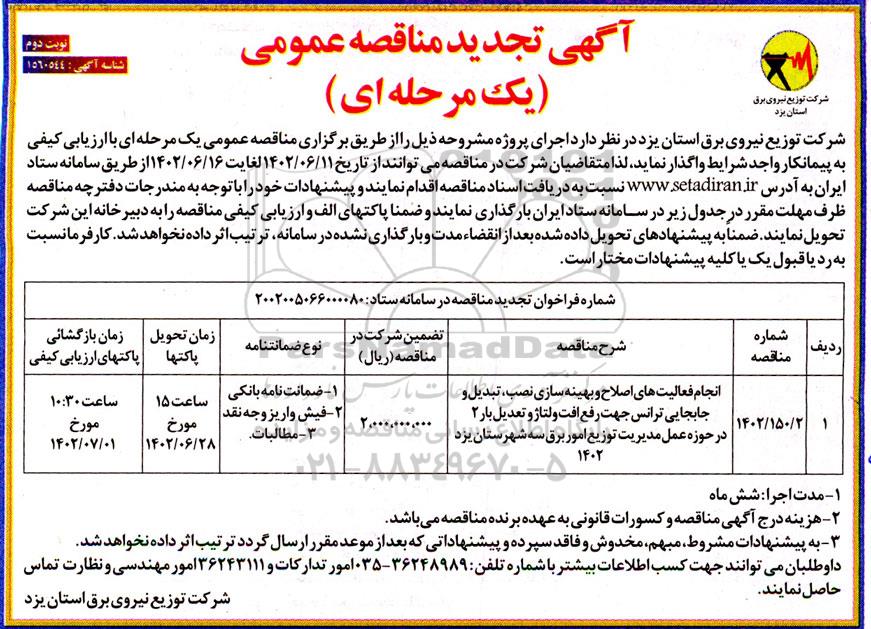 آگهی تجدید مناقصه عمومی
(یک مرحله ای)
نوبت دوم
شناسه آگهی : ۱۵۶۰۵۴۴
شرکت توزیع نیروی برق
استان یزد
شرکت توزیع نیروی برق استان یزد در نظر دارد اجرای پروژه مشروحه ذیل را از طریق برگزاری مناقصه عمومی یک مرحله ای با ارزیابی کیفی
به پیمانکار واجد شرایط واگذار نماید، لذا متقاضیان شرکت در مناقصه می توانند از تاریخ ۱۴۰۲/۰۶/۱۱ لغایت ۱۴۰۲/۰۶/۱۶ از طریق سامانه ستاد
ایران به آدرس www.setadiran.ir نسبت به دریافت اسناد مناقصه اقدام نمایند و پیشنهادات خود را با توجه به مندرجات دفترچه مناقصه
ظرف مهلت مقرر در جدول زیر در سامانه ستاد ایران بارگذاری نمایند و ضمنا پاکتهای الف و ارزیابی کیفی مناقصه را به دبیرخانه این شرکت
تحویل نمایند. ضمناً به پیشنهادهای تحویل داده شده بعد از انقضاء مدت و بارگذاری نشده در سامانه، ترتیب اثر داده نخواهد شد. کارفرما نسبت
به رد یا قبول یک یا کلیه پیشنهادات مختار است.
شماره فراخوان تجدید مناقصه در سامانه ستاد: ۲۰۰۲۰۰۵۰۶۶۰۰۰۰۸۰
ردیف
شماره
مناقصه
شرح مناقصه
تضمین شرکت در
مناقصه (ریال)
نوع ضمانتنامه
زمان تحویل
پاکتها
زمان بازگشائی
پاکتهای ارزیابی کیفی
۱
۱۴۰۲/۱۵۰/۲
انجام فعالیت های اصلاح و بهینه سازی نصب، تبدیل و
جابجایی ترانس جهت رفع افت ولتاژ و تعدیل بار ۲
در حوزه عمل مدیریت توزیع امور برق سه شهرستان یزد
۱۴۰۲
۲,۰۰۰,۰۰۰,۰۰۰
۱-ضمانت نامه بانکی
۲-فیش واریز وجه نقد
۳-مطالبات.
ساعت ۱۵
مورخ
۱۴۰۲/۰۶/۲۸
ساعت ۱۰:۳۰
مورخ
۱۴۰۲/۰۷/۰۱
۱-مدت اجرا: شش ماه
۲-هزینه درج آگهی مناقصه و کسورات قانونی به عهده برنده مناقصه می باشد.
۳-به پیشنهادات مشروط، مبهم، مخدوش و فاقد سپرده و پیشنهاداتی که بعد از موعد مقرر ارسال گردد ترتیب اثر داده نخواهد شد.
داوطلبان می توانند جهت کسب اطلاعات بیشتر با شماره تلفن: ۳۶۲۴۸۹۸۹-۰۳۵ امور تدارکات و ۳۶۲۴۳۱۱۱ امور مهندسی و نظارت تماس
حاصل نمایند.
شرکت توزیع نیروی برق استان یزد
ParsNamadData
۰۲۱-۸۸۳۴۹۶۷۰-۵